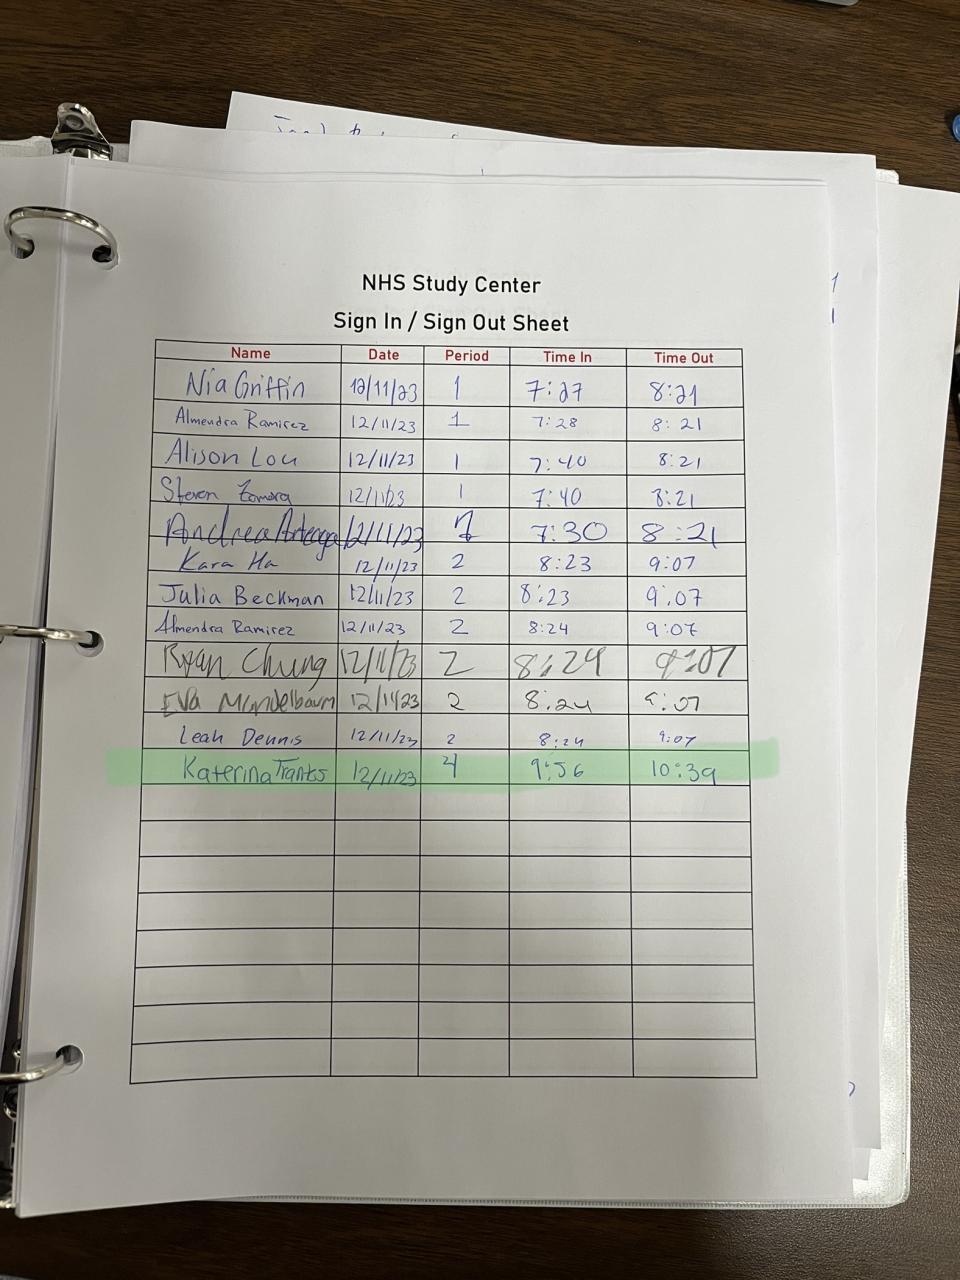 NHS Study Center
Sign In / Sign Out Sheet
Name Date Period Time In Time Out
Nia Griffin 12/11/23 1 7:27 8:21
Almendra Ramirez 12/11/23 1 7:28 8:21
Alison Lou 12/11/23 1 7:40 8:21
Steven Zamora 12/11/23 1 7:40 8:21
Andrea Arteaga 12/11/23 1 7:30 8:21
Kara Ha 12/11/23 2 8:23 9:07
Julia Beckman 12/11/23 2 8:23 9:07
Almendra Ramirez 12/11/23 2 8:24 9:07
Ryan Chung 12/11/23 2 8:24 9:07
Eva Mendelbaum 12/11/23 2 8:24 9:07
Leah Dennis 12/11/23 2 8:24 9:07
Katerina Frantzis 12/11/23 4 9:56 10:39